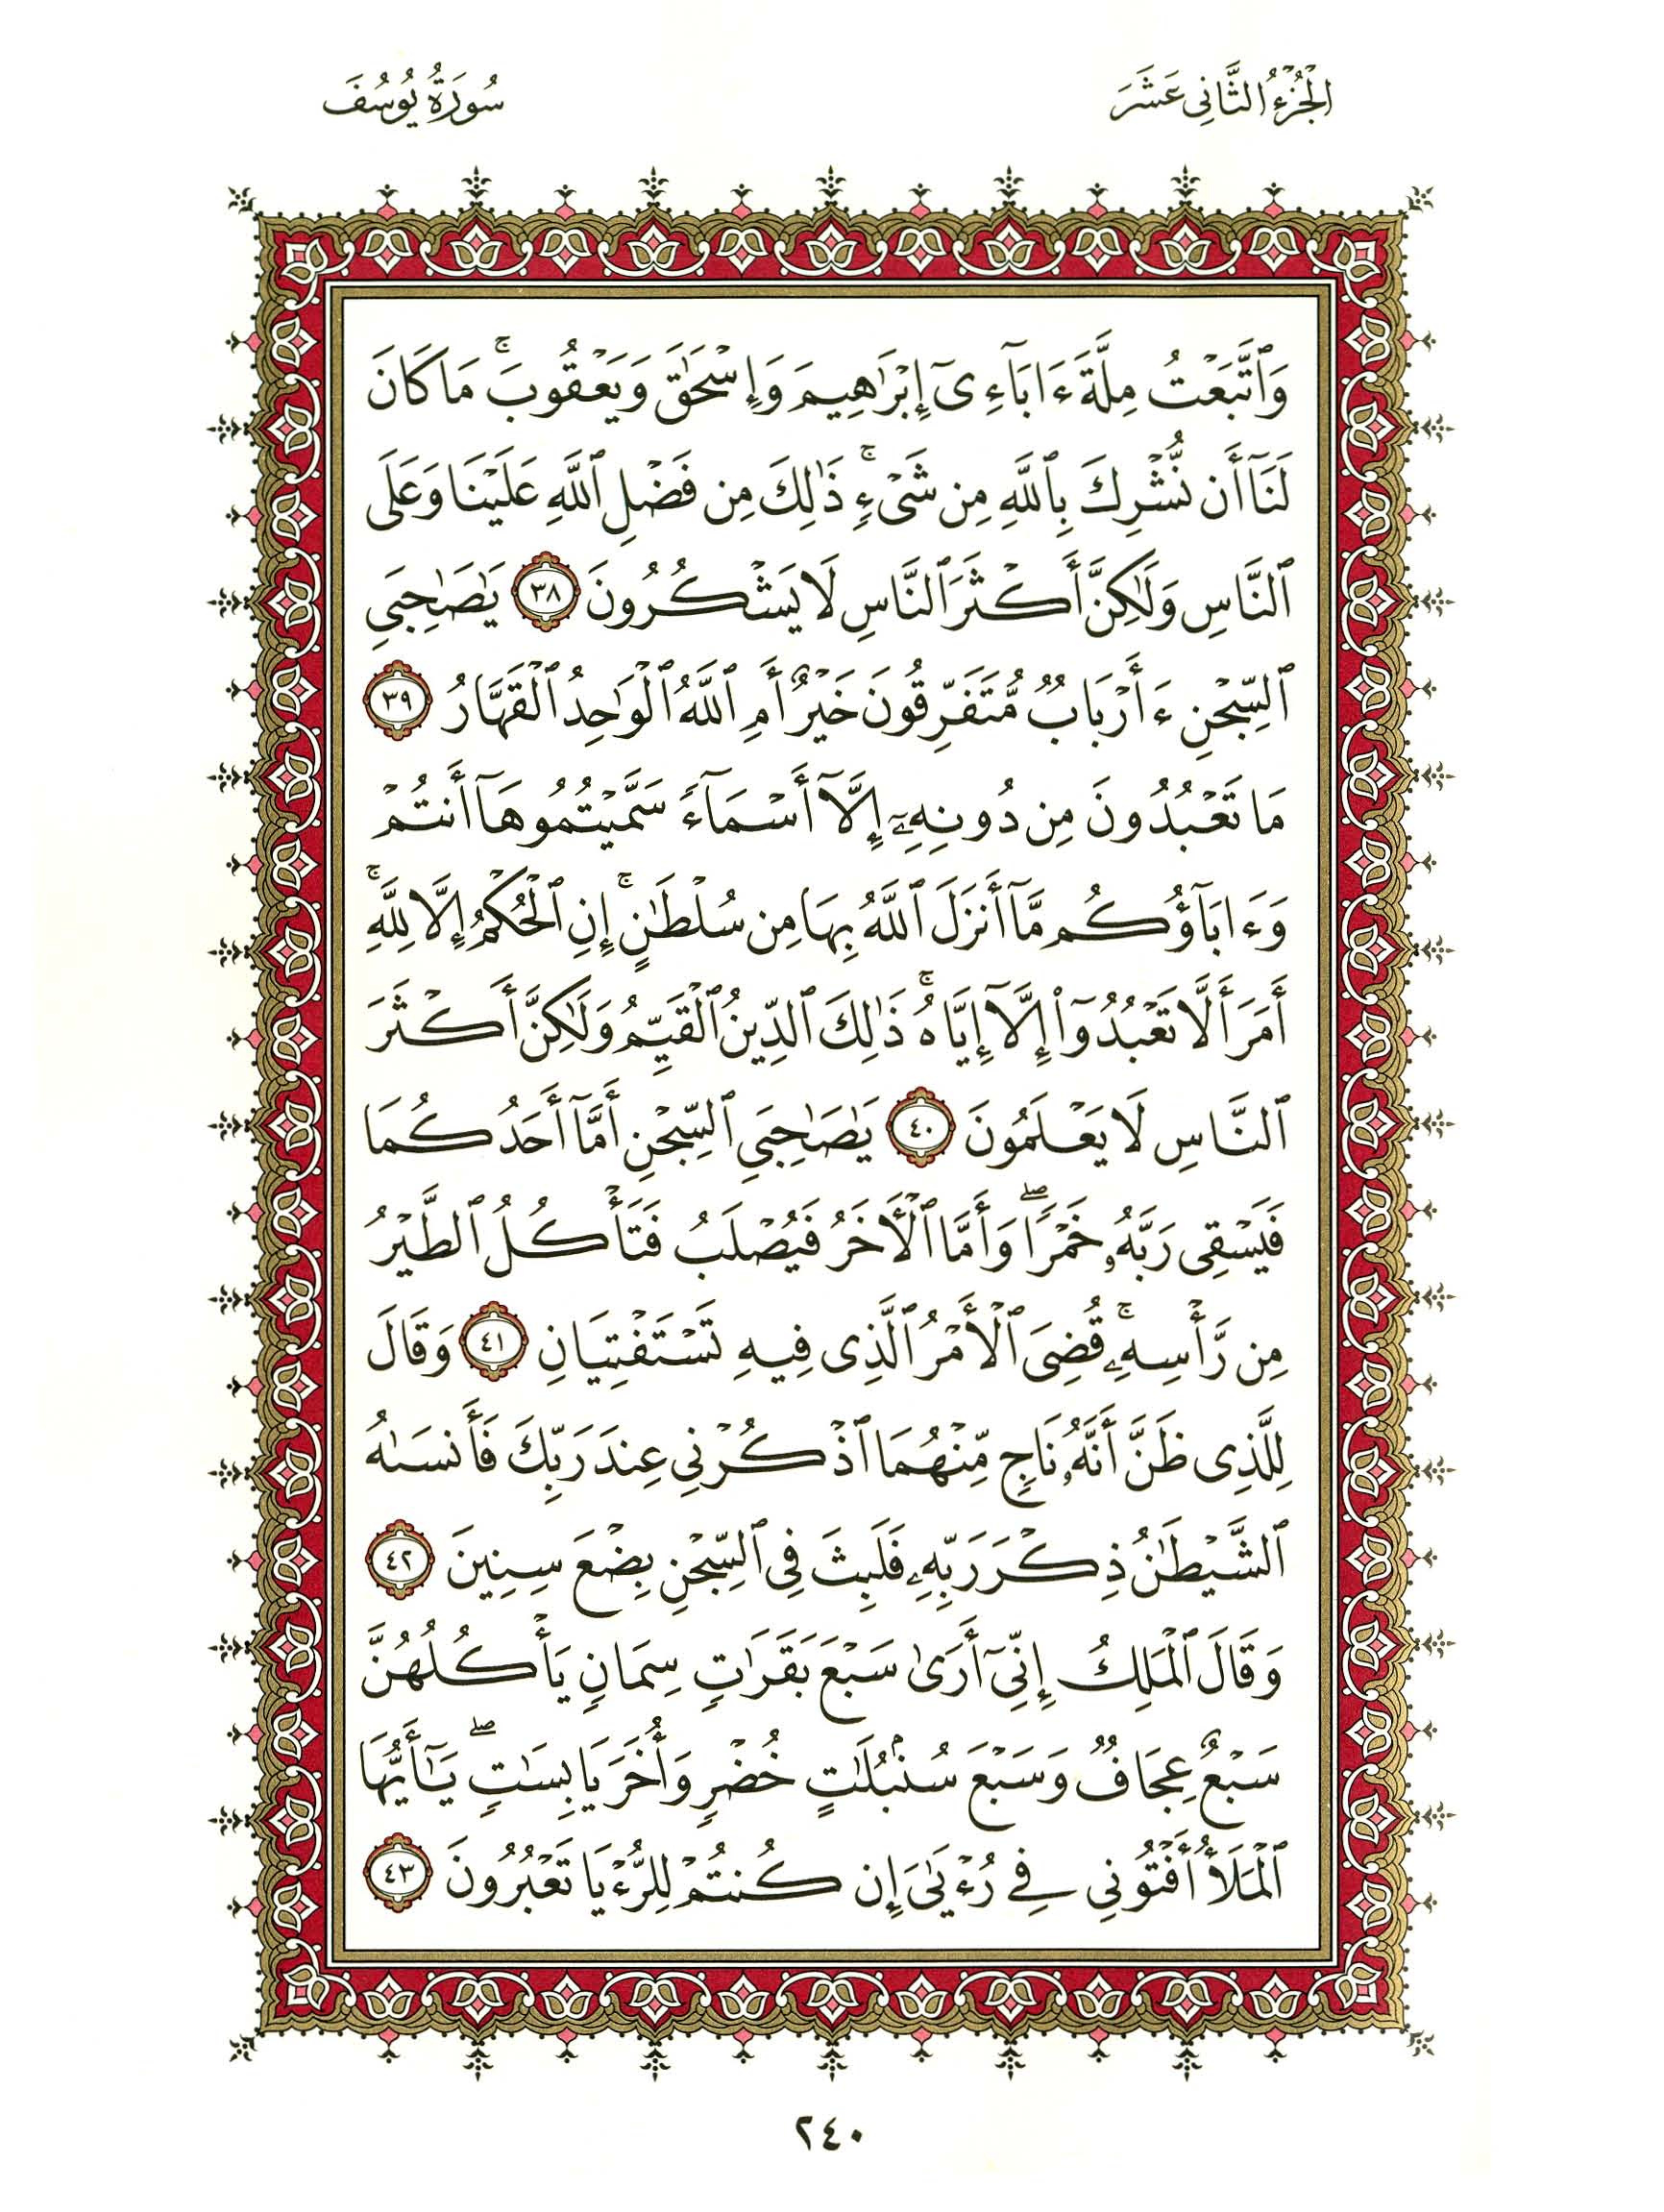 الجُزْءُ الثَّانِي عَشَرَ
سُورَةُ يُوسُفَ
وَٱتَّبَعْتُ مِلَّةَ ءَابَآءِىٓ إِبْرَٰهِيمَ وَإِسْحَٰقَ وَيَعْقُوبَ ۚ مَا كَانَ
لَنَآ أَن نُّشْرِكَ بِٱللَّهِ مِن شَىْءٍ ۚ ذَٰلِكَ مِن فَضْلِ ٱللَّهِ عَلَيْنَا وَعَلَى
ٱلنَّاسِ وَلَٰكِنَّ أَكْثَرَ ٱلنَّاسِ لَا يَشْكُرُونَ ٣٨ يَٰصَٰحِبَىِ
ٱلسِّجْنِ ءَأَرْبَابٌ مُّتَفَرِّقُونَ خَيْرٌ أَمِ ٱللَّهُ ٱلْوَٰحِدُ ٱلْقَهَّارُ ٣٩
مَا تَعْبُدُونَ مِن دُونِهِۦٓ إِلَّآ أَسْمَآءً سَمَّيْتُمُوهَآ أَنتُمْ
وَءَابَآؤُكُم مَّآ أَنزَلَ ٱللَّهُ بِهَا مِن سُلْطَٰنٍ ۚ إِنِ ٱلْحُكْمُ إِلَّا لِلَّهِ ۚ
أَمَرَ أَلَّا تَعْبُدُوٓا۟ إِلَّآ إِيَّاهُ ۚ ذَٰلِكَ ٱلدِّينُ ٱلْقَيِّمُ وَلَٰكِنَّ أَكْثَرَ
ٱلنَّاسِ لَا يَعْلَمُونَ ٤٠ يَٰصَٰحِبَىِ ٱلسِّجْنِ أَمَّآ أَحَدُكُمَا
فَيَسْقِى رَبَّهُۥ خَمْرًا ۖ وَأَمَّا ٱلْأَخَرُ فَيُصْلَبُ فَتَأْكُلُ ٱلطَّيْرُ
مِن رَّأْسِهِۦ ۚ قُضِىَ ٱلْأَمْرُ ٱلَّذِى فِيهِ تَسْتَفْتِيَانِ ٤١ وَقَالَ
لِلَّذِى ظَنَّ أَنَّهُۥ نَاجٍ مِّنْهُمَا ٱذْكُرْنِى عِندَ رَبِّكَ فَأَنسَىٰهُ
ٱلشَّيْطَٰنُ ذِكْرَ رَبِّهِۦ فَلَبِثَ فِى ٱلسِّجْنِ بِضْعَ سِنِينَ ٤٢
وَقَالَ ٱلْمَلِكُ إِنِّىٓ أَرَىٰ سَبْعَ بَقَرَٰتٍ سِمَانٍ يَأْكُلُهُنَّ
سَبْعٌ عِجَافٌ وَسَبْعَ سُنۢبُلَٰتٍ خُضْرٍ وَأُخَرَ يَابِسَٰتٍ ۖ يَٰٓأَيُّهَا
ٱلْمَلَأُ أَفْتُونِى فِى رُءْيَٰىَ إِن كُنتُمْ لِلرُّءْيَا تَعْبُرُونَ ٤٣
٢٤٠